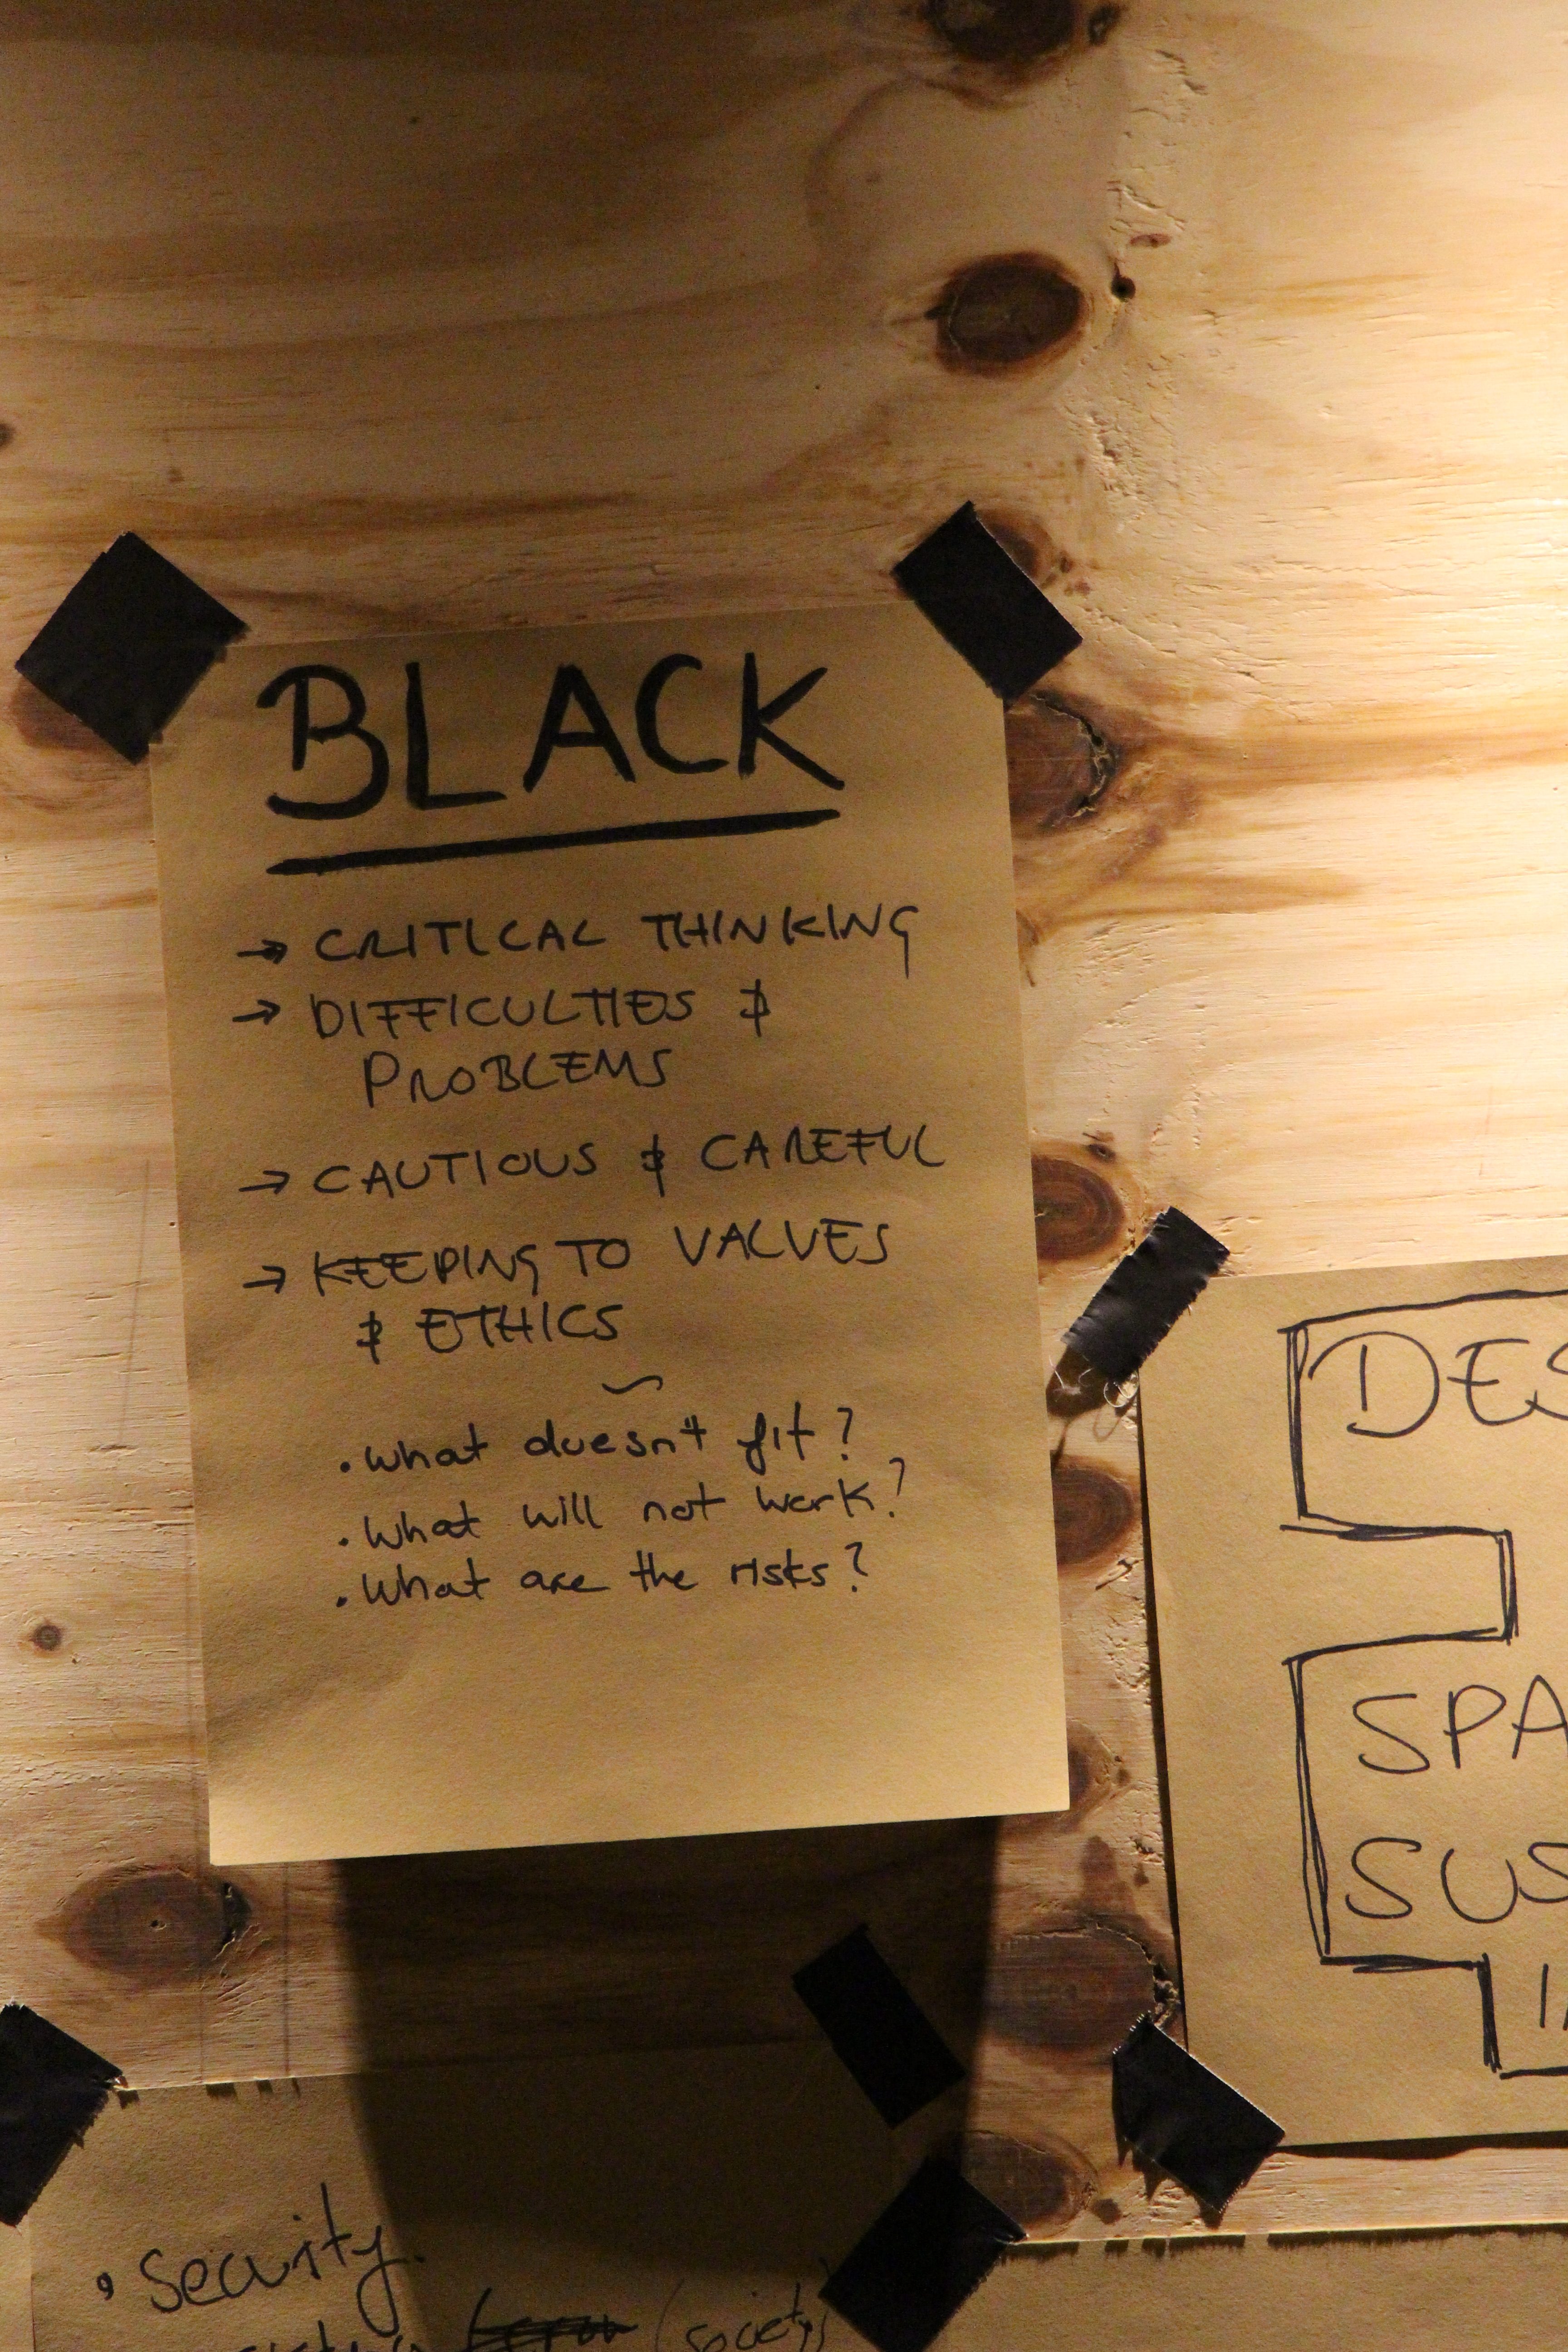 BLACK
→ CRITICAL THINKING
→ DIFFICULTIES &
PROBLEMS
→ CAUTIOUS & CAREFUL
→ KEEPING TO VALUES
& ETHICS
~
• What doesn't fit?
• What will not work?
• What are the risks?
DES
SPA
SUS
• Security.
(society)